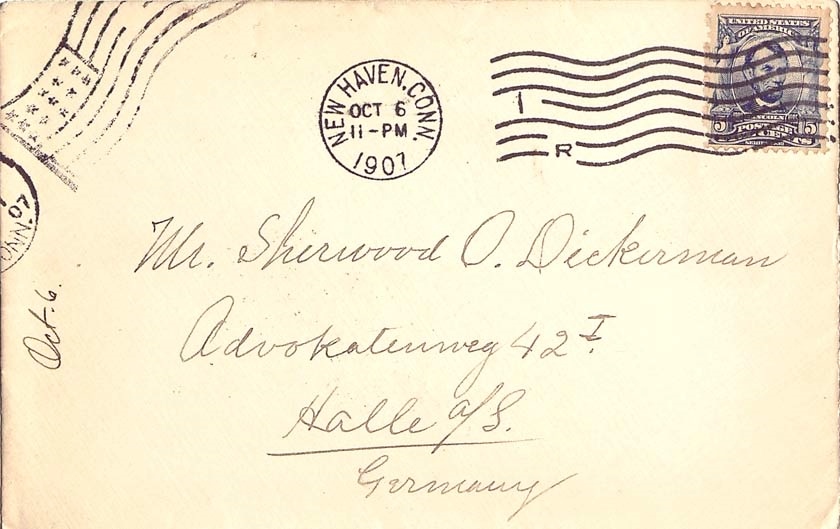 NEW HAVEN, CONN.
OCT 6
11-PM
1907
1
R
UNITED STATES
OF AMERICA
LINCOLN
5 POSTAGE 5
Mr. Sherwood O. Dickerman
Advokatenweg 42 I.
Halle a/S.
Germany
Oct. 6.